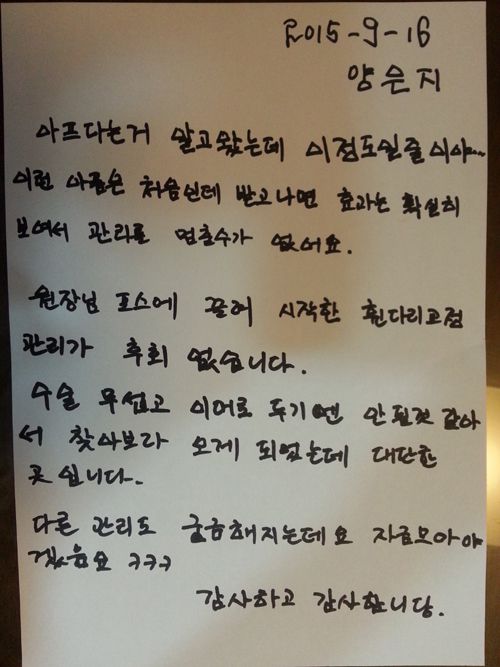 2015-9-16
양은지
아프다는거 알고왔는데 이정도일줄이야~
이런 아픔은 처음인데 받고나면 효과는 확실히
보여서 관리를 멈출수가 없어요.
원장님 포스에 끌려 시작한 휜다리교정
관리가 후회 없습니다.
수술 무섭고 이대로 두기엔 안될것 같아
서 찾아보라 오게 되었는데 대단한
곳 입니다.
다른 관리도 궁금해지는데요 자금모아야
겠음요 ㅋㅋㅋ
감사하고 감사합니당.